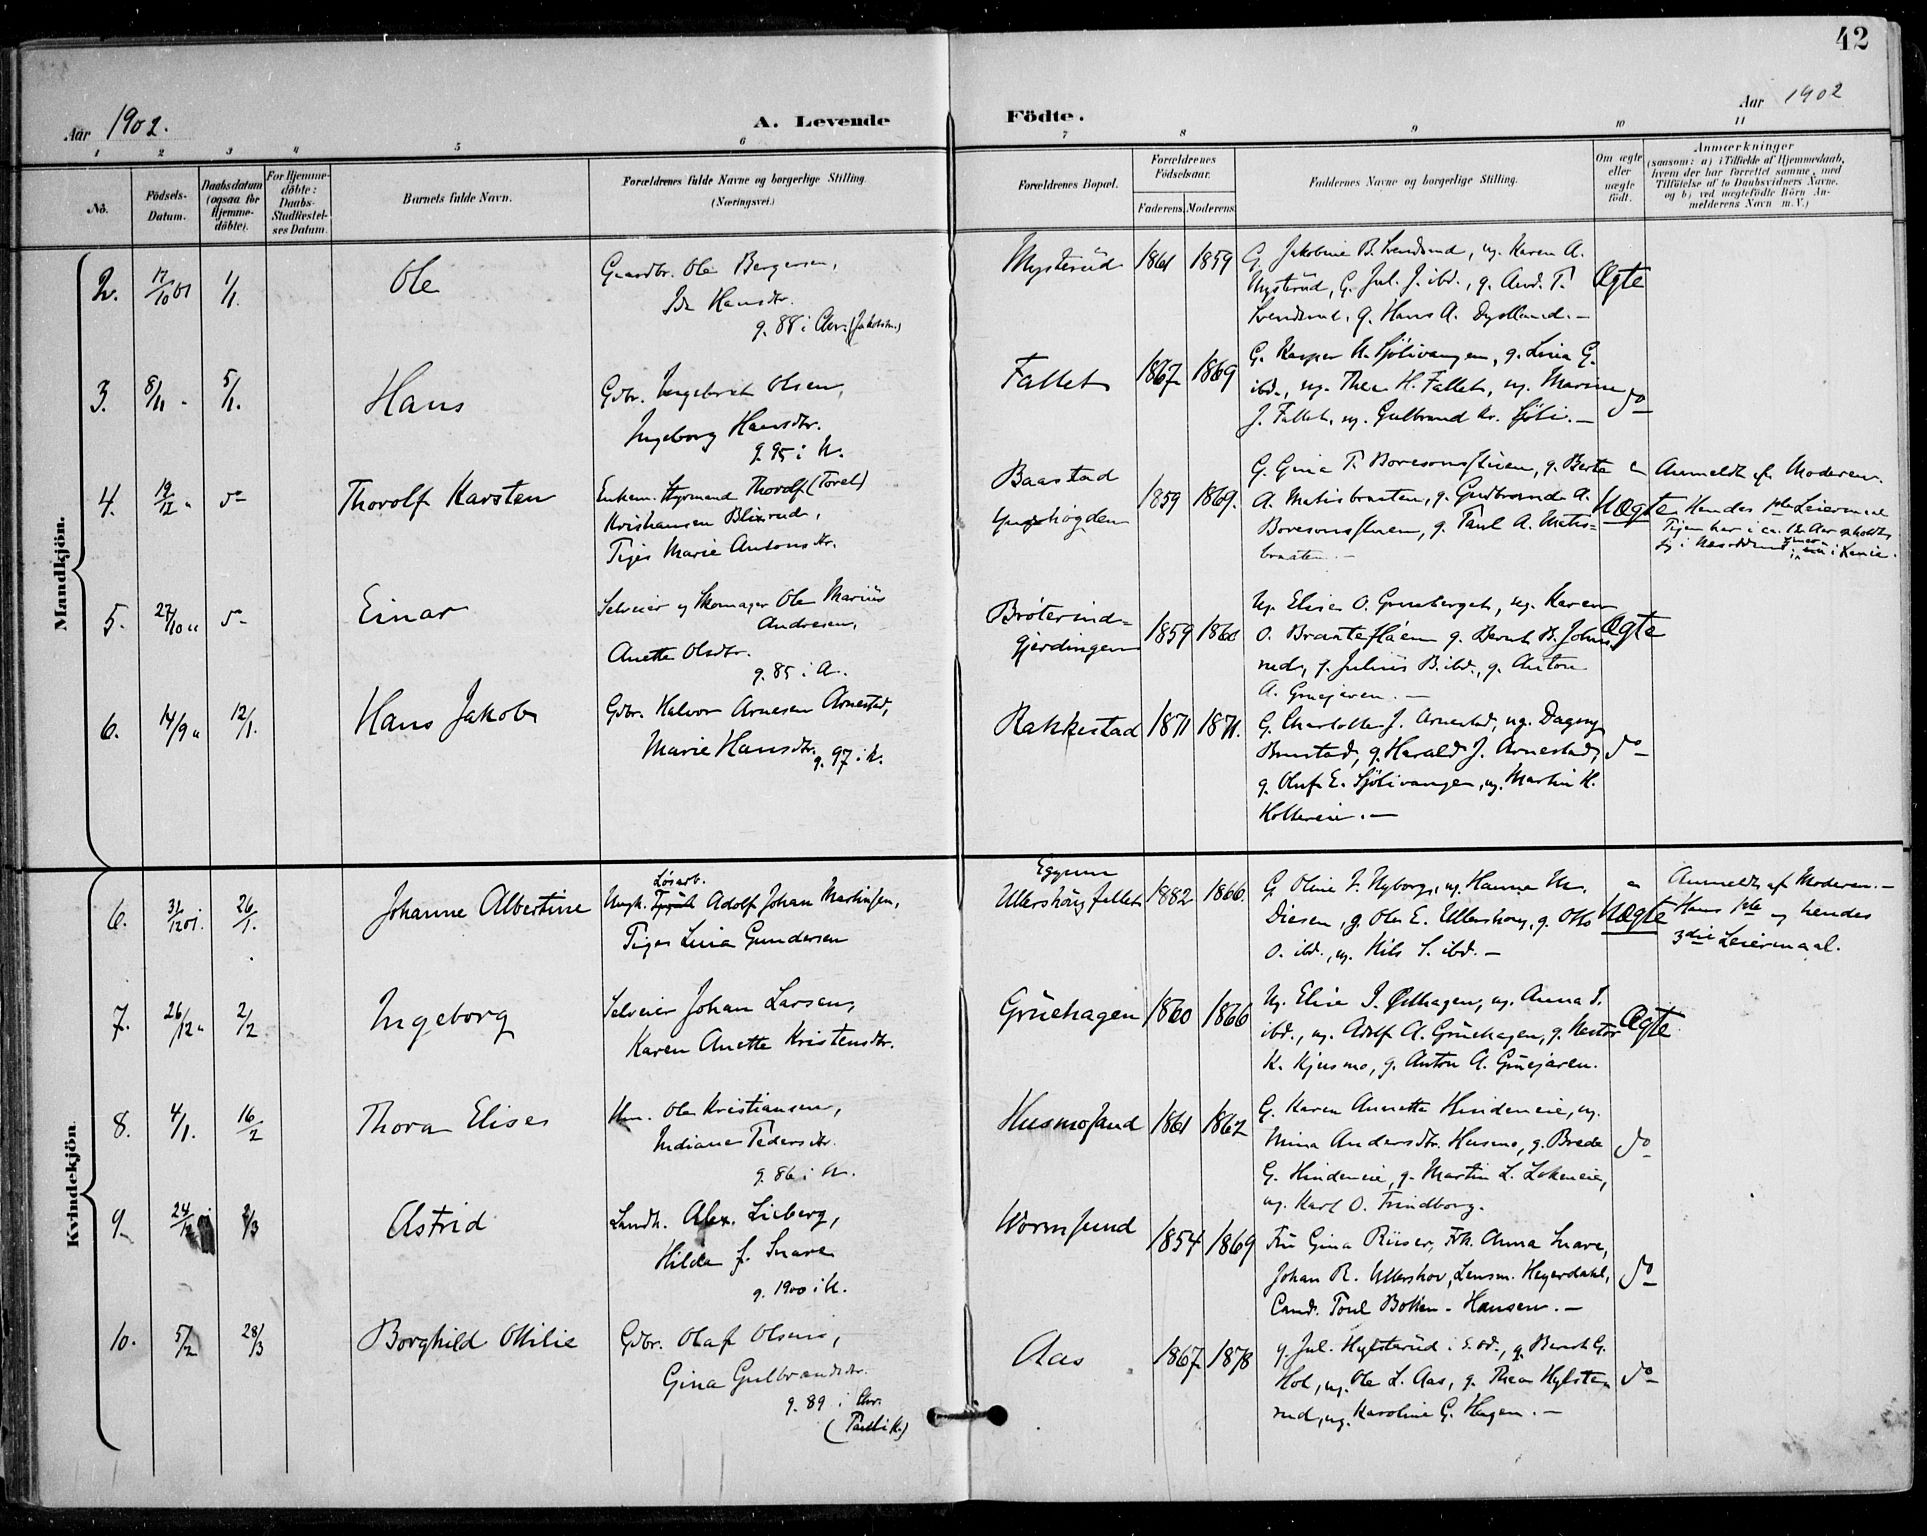 42
Aar 1902.
A. Levende Födte.
Aar 1902
1 2 3 4 5 6 7 8 9 10 11
No.
Födsels-Datum.
Daabsdatum (ogsaa for Hjemmedöbte).
For Hjemmedöbte: Daabs-Stadfæstelses Datum.
Barnets fulde Navn.
Forældrenes fulde Navne og borgerlige Stilling. (Næringsvei.)
Forældrenes Bopæl.
Forældrenes Födselsaar.
Faderens. Moderens.
Faddernes Navne og borgerlige Stilling.
Om ægte eller uægte födt.
Anmærkninger
(saasom: a) i Tilfælde af Hjemmedaab, hvem der har forrettet samme, med Tilföielse af to Daabsvidners Navne. og b) ved uægtefödte Börn Anmelderens Navn m. V.)
Mandkjön.
2. 17/10 01 1/1. Ole
Gaardbr. Ole Bergersen,
Ida Hansdtr.
g. 88 i Chr. (Jakobsk.)
Mysterüd 1861 1859
G. Jakobine B. Svendsrud, ug. Karen A.
Mysterüd, G. Jul. J. ibd., g. And. T.
Svendsrud, g. Hans A. Dysland. -
Ægte
3. 8/11 " 5/1. Hans
Gdbr. Ingebret Olsen,
Ingeborg Hansdtr.
g. 95 i N.
Fallet 1867 1869
G. Kasper H. Sjölivangen, g. Lina G.
ibd., ug. Thea H. Fallet, ug. Marine
J. Fallet, ug. Gulbrand Kr. Sjöli. -
do
4. 19/12 " do Thorolf Karsten
Enkem. Styrmand Thorolf (Torel)
Kristiansen Blixrud,
Pigen Marie Antonsdtr.
Baastad 1859 1869.
G. Gina T. Boresonsfluen, g. Berte
A. Matisbraaten, g. Gudbrand A.
Boresonsfluen, g. Paul A. Matis-
braaten. -
Uægte
Anmeldt af Moderen.
Hendes 1ste Leiermaal
5. 27/10 " do Einar
Selveier og Skomager Ole Marius
Andresen,
Anette Olsdtr.
g. 85 i A.
Bröterud-
gjerdingen 1859 1860
Ug. Elise O. Gruebergets, ug. Karen
O. Braatefläen g. Bernt B. Johns-
rud, g. Julius B. ibd., g. Anton
A. Gruejaren. -
Ægte
6. 14/9 " 12/1. Hans Jakob
Gdbr. Halvor Arnesen Arnestad,
Marie Hansdtr.
g. 97 i N.
Rakkestad 1871 1871.
G. Charlotte J. Arnestad, ug. Dagny
Brustad, g. Harald J. Arnestad,
g. Oluf E. Sjölivangen, ug. Martin K.
Holtereie. -
do
Kvindekjön.
6. 31/12 01. 26/1. Johanne Albertine
Lösarb.
Ungk. Adolf Johan Martinsen,
Pigen Lina Gundersen
Ullershövfallet 1882 1866.
G. Oline J. Nyborg, ug. Hanna M.
Diesen, g. Ole E. Ullershov, g. Otto
O. ibd., ug. Nils S. ibd. -
Uægte
Anmeldt af Moderen. -
Hans 1ste og hendes
3die Leiermaal.
7. 26/12 " 2/2 Ingeborg
Selveier Johan Larsen,
Karen Anette Kristensdtr.
Grüehagen 1860 1866
Ug. Elise J. Östhagen, ug. Anna S.
ibd., ug. Adolf A. Grüehagen, g. Nestor
K. Kjusmo, g. Anton A. Grüejaren.
Ægte
8. 4/1. 16/2 Thora Elise
Hm. Ole Kristiansen,
Indiana Pedersdtr.
g. 86 i N.
Husmosand 1861 1862
G. Karen Annette Hindeneie, ug.
Mina Andersdtr. Husmo, g. Brede
G. Hindeneie, g. Martin L. Lokeneie,
ug. Karl O. Trindborg.
do
9. 24/12 2/3 Astrid
Landh. Alex. Lieberg,
Hilda f. Snare
g. 1900 i N.
Wormsund 1854 1869
Fru Gina Riiser, Frk. Anna Snare,
Johan R. Ullershov, Lensm. Heyerdahl,
Cand. Poul Botten-Hansen. -
do
10. 5/2 28/3 Borghild Otilie
Gdbr. Olaf Olsen,
Gina Gulbrandsdtr.
g. 89 i Chr.
(Paulik.)
Aas 1867 1878
g. Jul. Hylsterüd i S. Od., g. Bernt G.
Hol, ug. Ole L. Aas, g. Thea Hylste-
rud, ug. Karoline G. Hagen. -
do